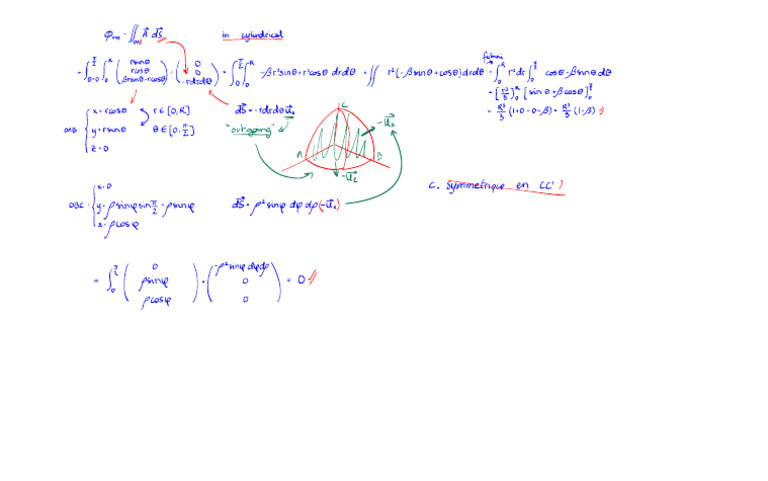 in cylindrical
ϕ_OAB = ∬_OAB A⃗ dS⃗
= ∫_{θ=0}^{π/2} ∫_0^R ( rsinθ, rcosθ, βrsinθ-rcosθ ) · ( 0, 0, -rdrdθ ) = ∫_0^{π/2} ∫_0^R -βr²sinθ+r²cosθ drdθ = ∬ r²(-βsinθ+cosθ)drdθ = ∫_0^R r²dr ∫_0^{π/2} cosθ-βsinθ dθ
fubini
= [r³/3]_0^R [sinθ+βcosθ]_0^{π/2}
= R³/3 (1+0-0-β) = R³/3 (1-β)
OAB: { x=rcosθ r∈[0,R]
y=rsinθ θ∈[0,π/2]
z=0
dS⃗=-rdrdθu⃗z
"outgoing"
C
-u⃗x
A B
-u⃗z
c. symmetrique en CC'
OBC: { x=0
y=ρsinφsinπ/2=ρsinφ
z=ρcosφ
dS⃗=ρ²sinφ dφ dρ(-u⃗x)
= ∫_0^{π/2} ( 0, ρsinφ, ρcosφ ) · ( -ρ²sinφdφdρ, 0, 0 ) = 0